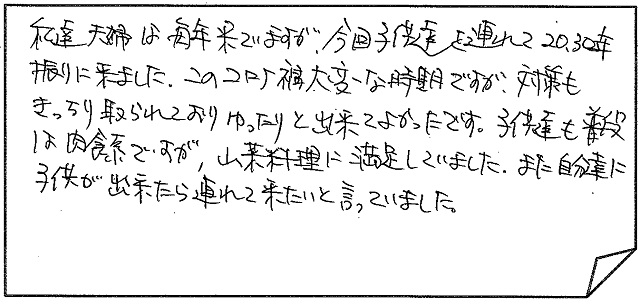 私達夫婦は毎年来ていますが、今回子供達を連れて20,30年
振りに来ました。このコロナ禍大変な時期ですが、対策も
きっちり取られておりゆったりと出来てよかったです。子供達も普段
は肉食系ですが、山菜料理に満足していました。また自分達に
子供が出来たら連れて来たいと言っていました。